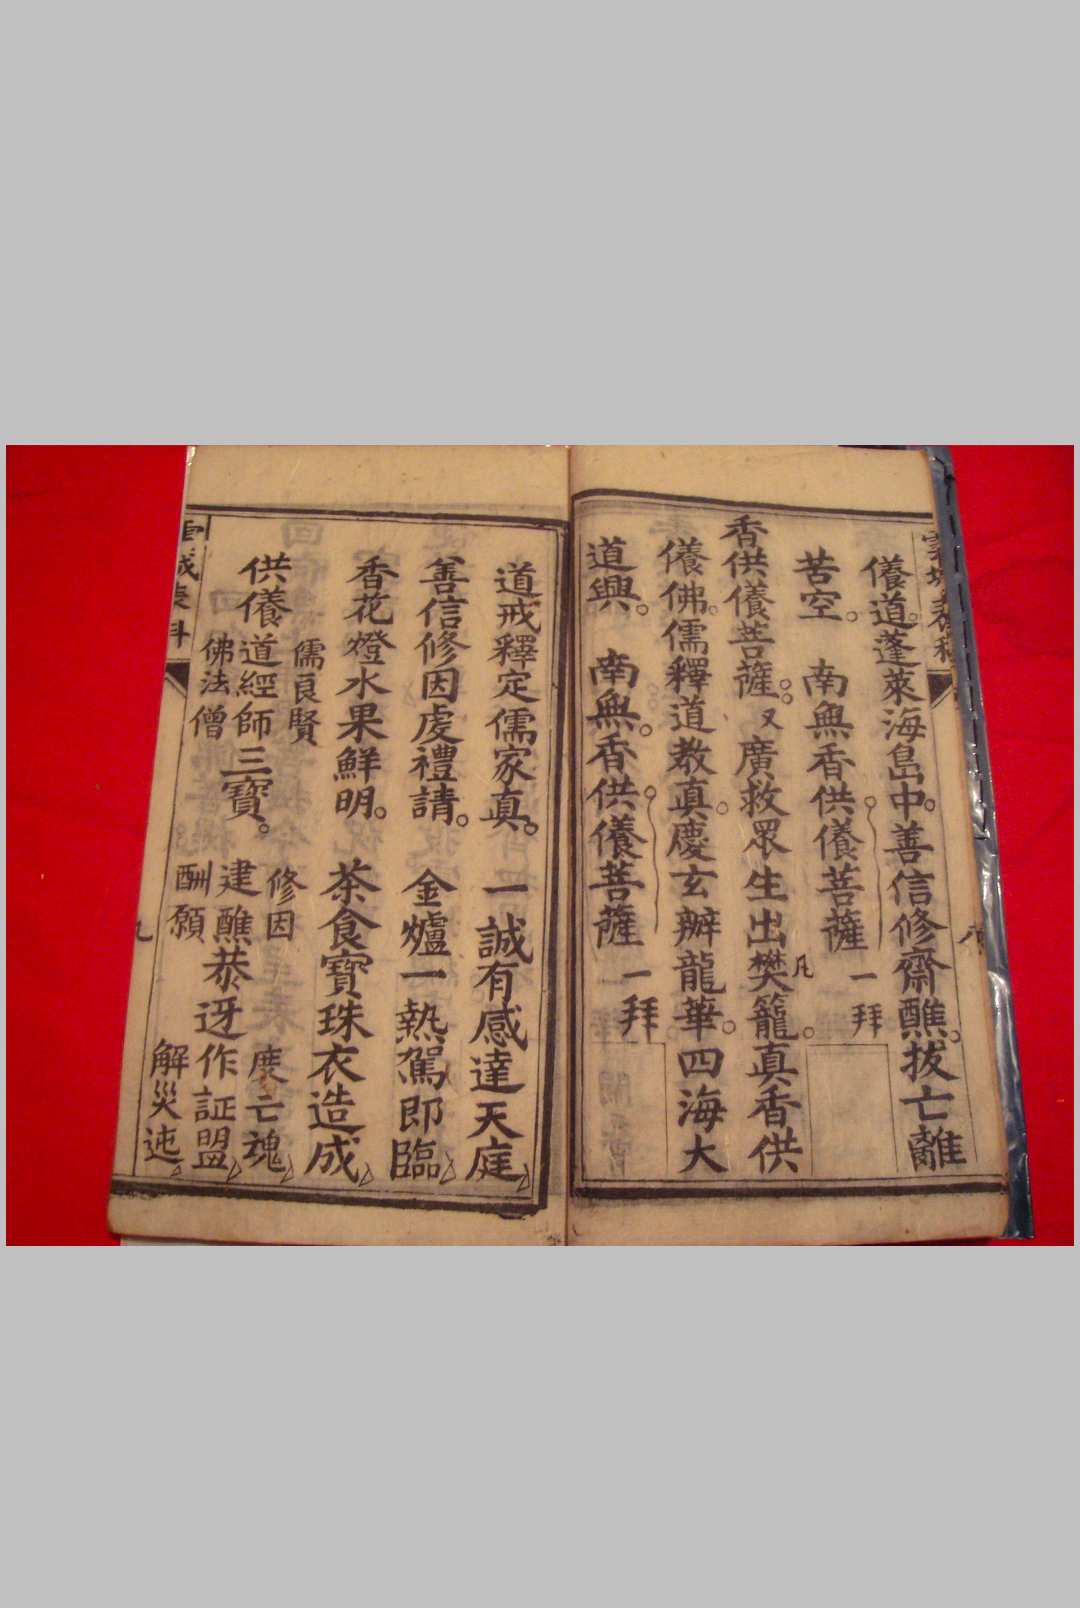 儀道。蓬萊海島中。善信修齋醮。拔亡離
苦空。 南無香供儀菩薩 一拜
香供儀菩薩。又廣救眾生出樊籠。真香供
凡
儀佛。儒釋道教真。慶玄辦龍華。四海大
道興。 南無。香供儀菩薩 一拜
道戒釋定儒家真。 一誠有感達天庭
善信修因虔禮請。 金爐一熱駕即臨
香花燈水果鮮明。 茶食寶珠衣造成
儒良賢 修因 度亡魂
供儀道經師三寶。 建醮恭迓作証盟
佛法僧 酬願 解災迍
九